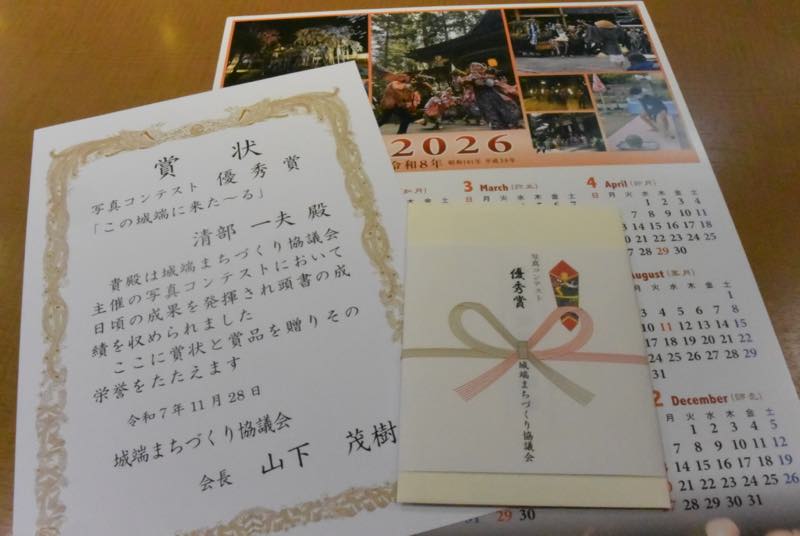 賞 状
写真コンテスト 優秀賞
「この城端に来た~る」
清部 一夫 殿
貴殿は城端まちづくり協議会
主催の写真コンテストにおいて
日頃の成果を発揮され頭書の成
績を収められました
ここに賞状と賞品を贈りその
栄誉をたたえます
令和7年11月28日
城端まちづくり協議会
会長 山下 茂樹
写真コンテスト
優秀賞
城端まちづくり協議会
2026
令和8年 昭和101年 平成38年
3 March
日 月 火 水 木 金 土
4 April (卯月)
日 月 火 水 木 金 土
1 2 3 4
7 8 9 10 11
14 15 16 17 18
21 22 23 24 25
28 29 30
August (葉月)
火 水 木 金 土
1
4 5 6 7 8
10 11 12 13 14 15
18 19 20 21 22
25 26 27 28 29
2 December
月 火 水 木 金 土
1 2 3 4 5
8 9 10 11 12
14 15 16 17 18 19
22 23 24 25 26
28 29 30 31
29 30